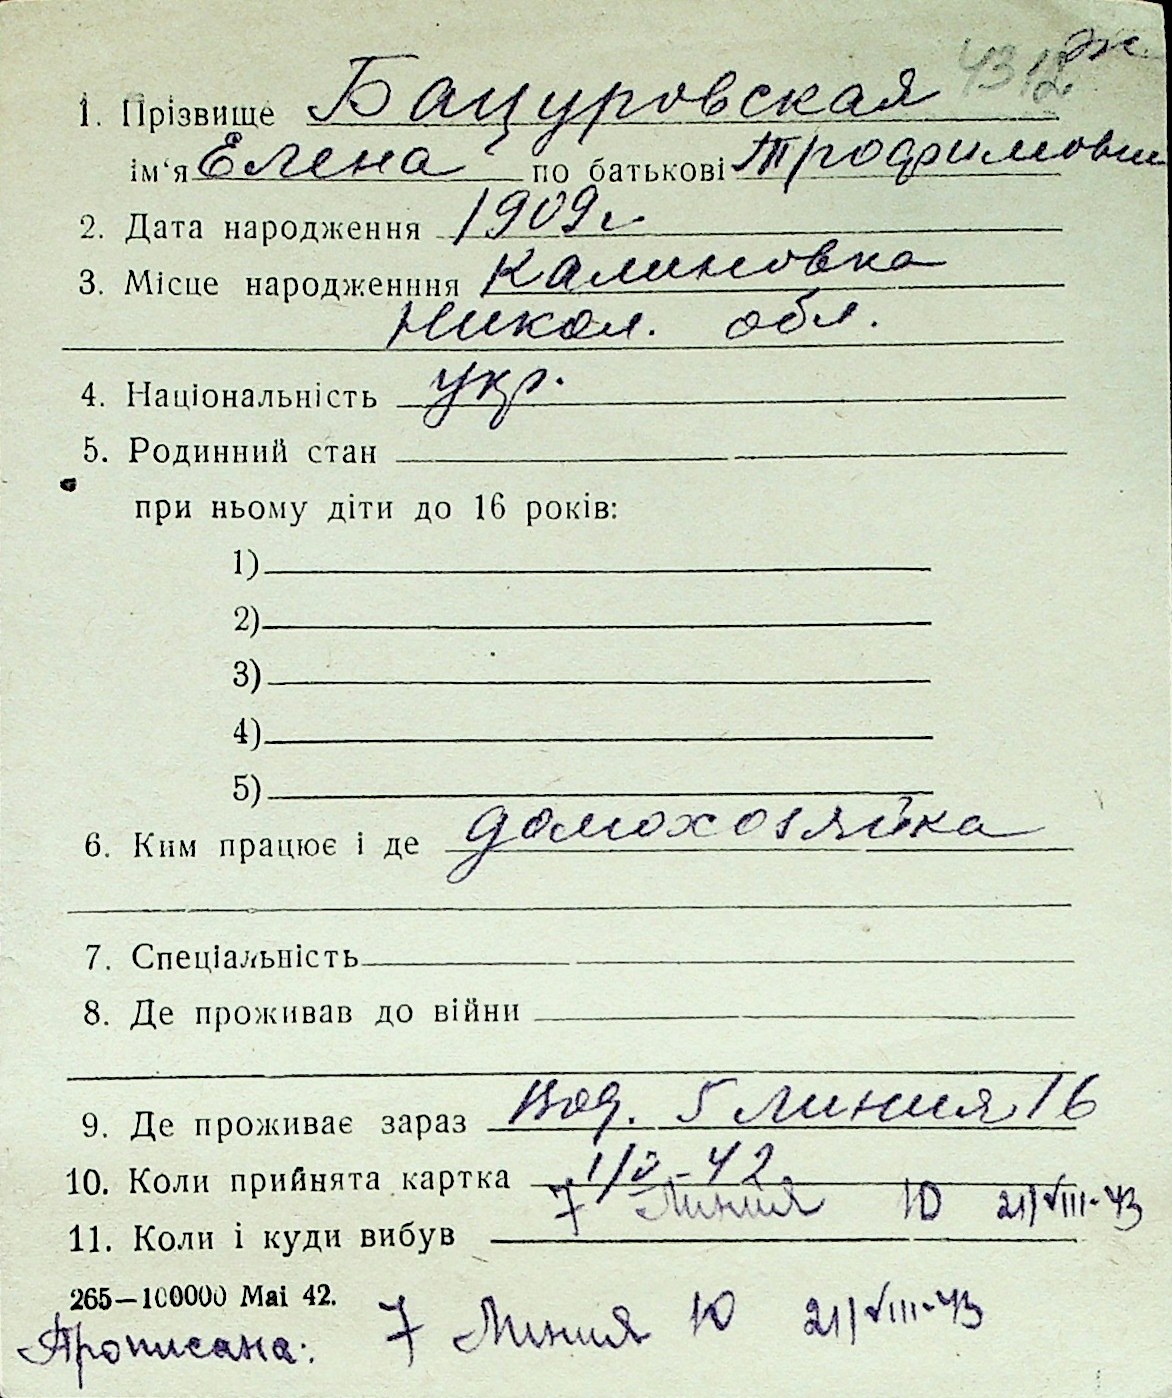 4312 эк
1. Прізвище Бацуровская
ім‘я Елена по батькові Трофимовн
2. Дата народження 1909 г
3. Місце народженння Калиновка
Никол. обл.
4. Національність укр.
5. Родинний стан
при ньому діти до 16 років:
1)
2)
3)
4)
5)
6. Ким працює і де домохозяйка
7. Спеціальність
8. Де проживав до війни
9. Де проживає зараз Вод. 5 линия 16
10. Коли прийнята картка 1/X-42
7 Линия 10 21/VIII-43
11. Коли і куди вибув
265—100000 Маі 42.
Прописана: 7 Линия 10 21/VIII-43